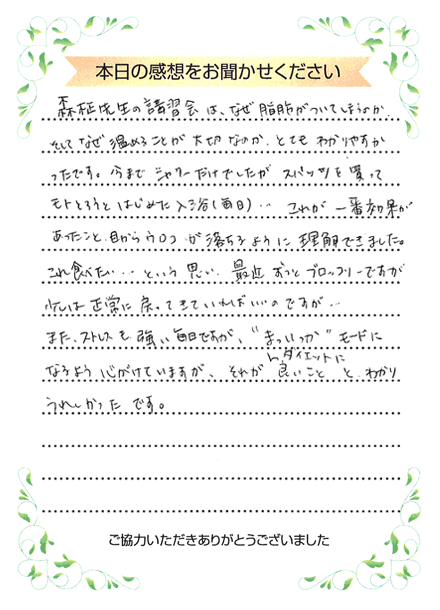 本日の感想をお聞かせください
森柾先生の講習会は、なぜ脂肪がついてしまうのか、
そしてなぜ温めることが大切なのか、とてもわかりやすか
ったです。今までシャワーだけでしたがスパッツを買って
モトとろうとはじめた入浴(毎日)… これが一番効果が
あったこと、目からウロコが落ちるように理解できました。
これ食べたい…という思い、最近ずっとブロッコリーですが
少しは正常に戻ってきていればいいのですが…
また、ストレスも強い毎日ですが、"まっいっか"モードに
なるよう心がけていますが、それがダイエットに良いこと と わかり
うれしかったです。
ご協力いただきありがとうございました